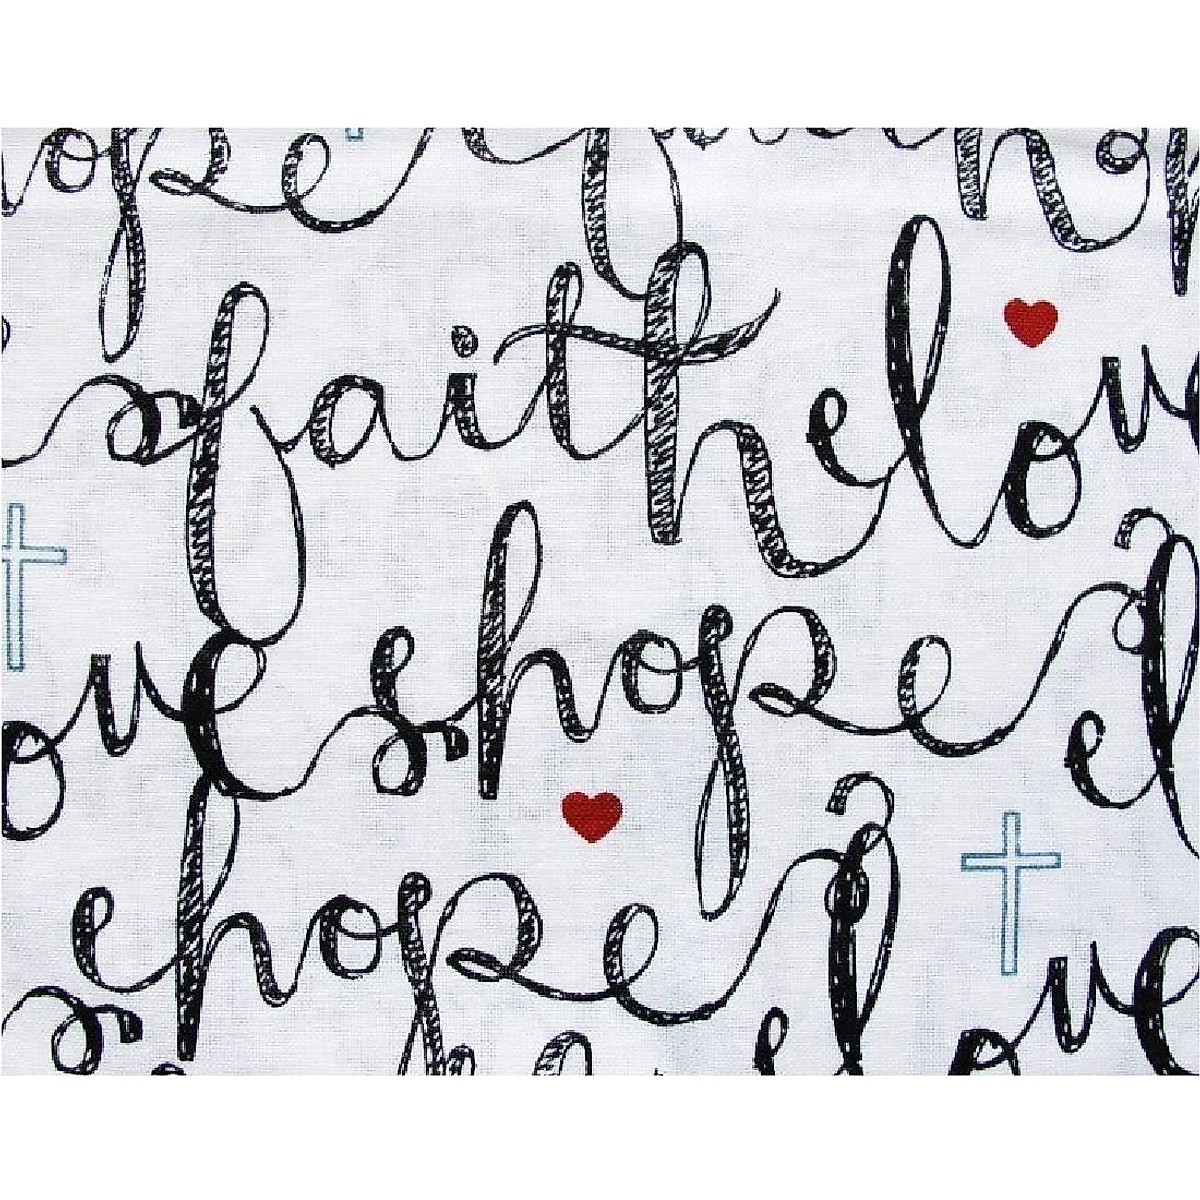 hope faith
faith love
love hope
hope love